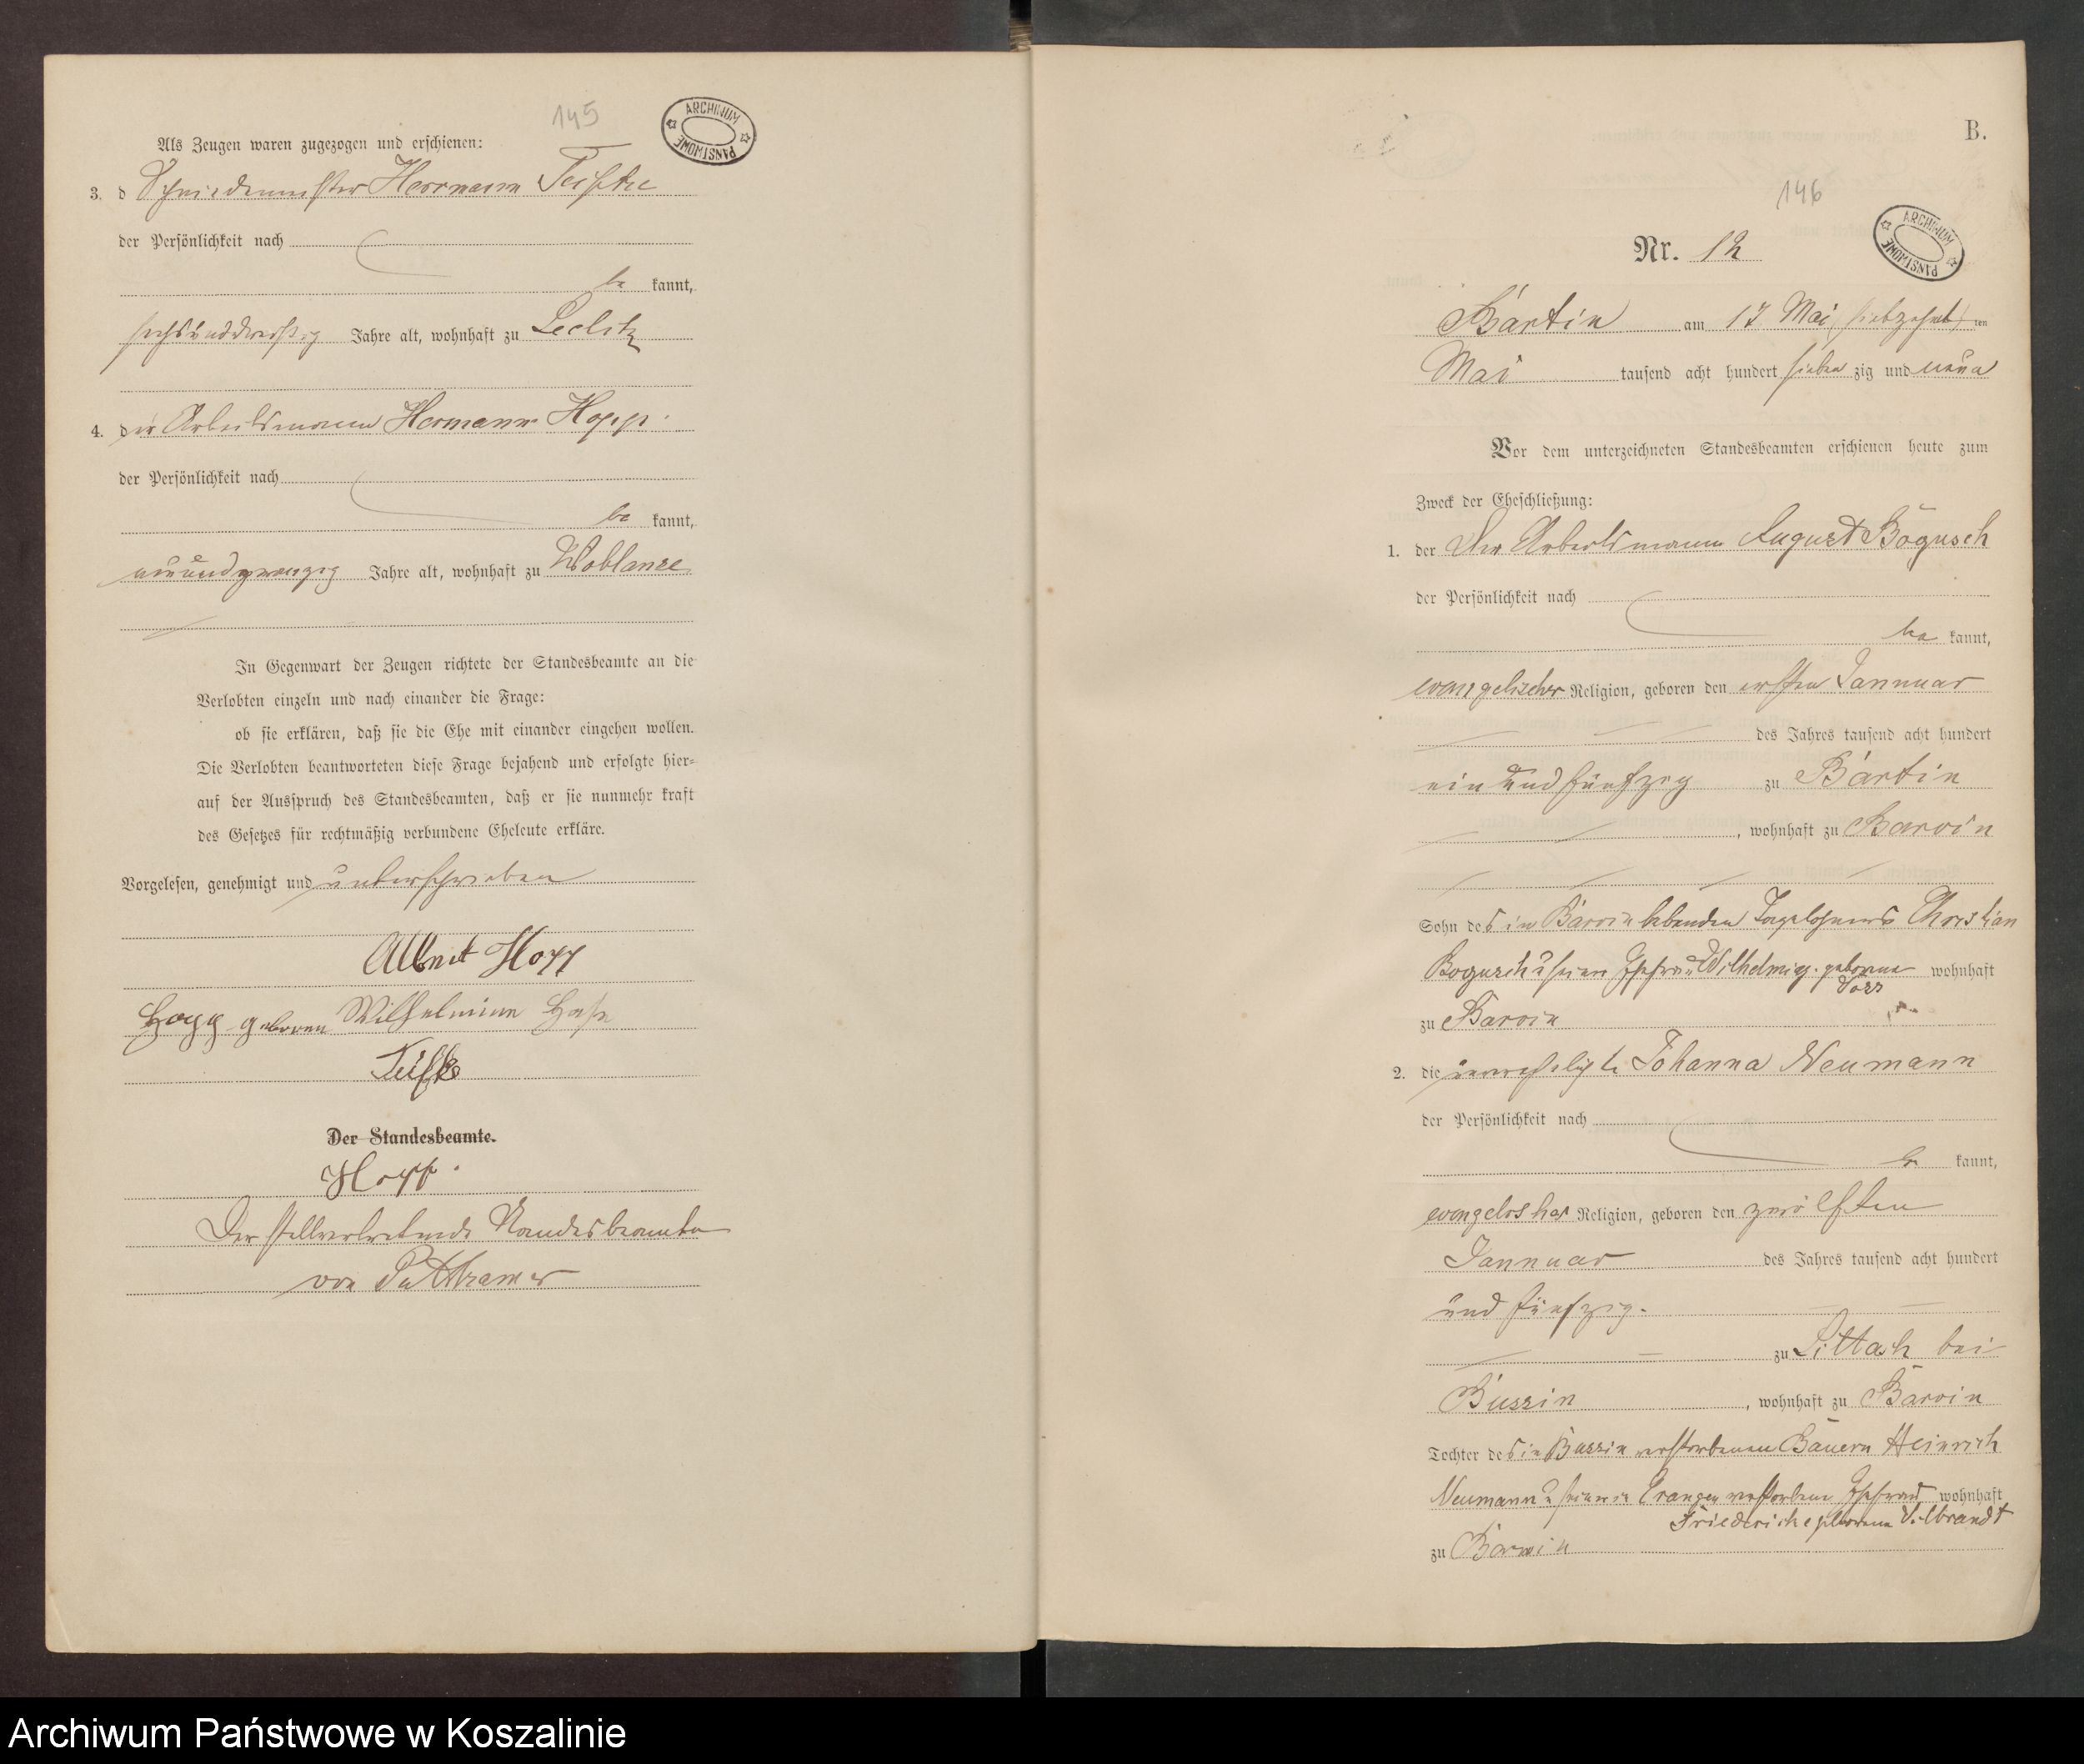 145
ARCHIWUM PAŃSTWOWE
Als Zeugen waren zugezogen und erschienen:
3. d Schmiedemeister Herrmann
der Persönlichkeit nach
be kannt,
sechsunddreißig Jahre alt, wohnhaft zu
4. der Arbeitsmann Hermann Hopp.
der Persönlichkeit nach
be kannt,
Jahre alt, wohnhaft zu Woblanse
In Gegenwart der Zeugen richtete der Standesbeamte an die
Verlobten einzeln und nach einander die Frage:
ob sie erklären, daß sie die Ehe mit einander eingehen wollen.
Die Verlobten beantworteten diese Frage bejahend und erfolgte hier-
auf der Ausspruch des Standesbeamten, daß er sie nunmehr kraft
des Gesetzes für rechtmäßig verbundene Eheleute erkläre.
Vorgelesen, genehmigt und unterschrieben
Albert Hopp
Hopp geboren Wilhelmine
Der Standesbeamte.
Hopp.
Der stellvertretende Standesbeamte
von Puttkamer
B.
146
ARCHIWUM PAŃSTWOWE
Nr. 12
Bartin am 17 Mai (siebzehnt) ten
Mai tausend acht hundert sieben zig und neun
Vor dem unterzeichneten Standesbeamten erschienen heute zum
Zweck der Eheschließung:
1. der Der Arbeitsmann August Bogusch
der Persönlichkeit nach
be kannt,
evangelischer Religion, geboren den ersten Jannuar
des Jahres tausend acht hundert
ein und fünfzig zu Bartin
, wohnhaft zu Barvin
Sohn des in Barvin lebenden Tagelöhners Christian
Bogusch u seiner Ehefrau Wilhelmig. geborene wohnhaft
zu Barvin
2. die unverehelichte Johanna Neumann
der Persönlichkeit nach
be kannt,
Religion, geboren den zwölften
Jannuar des Jahres tausend acht hundert
und fünfzig.
zu bei
Bussin, wohnhaft zu Barvin
Tochter des in Bussin verstorbenen Bauern Heinrich
Neumann u seiner in verstorbene Ehefrau wohnhaft
Friedericke geborene Vilbrandt
zu Barwin
Archiwum Państwowe w Koszalinie